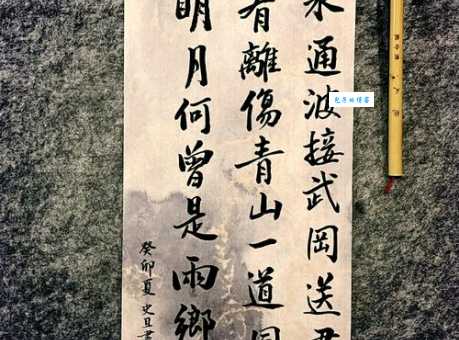 水通波接武岡送君
有離傷青山一道同
明月何曾是雨鄉
癸卯夏 史旦書